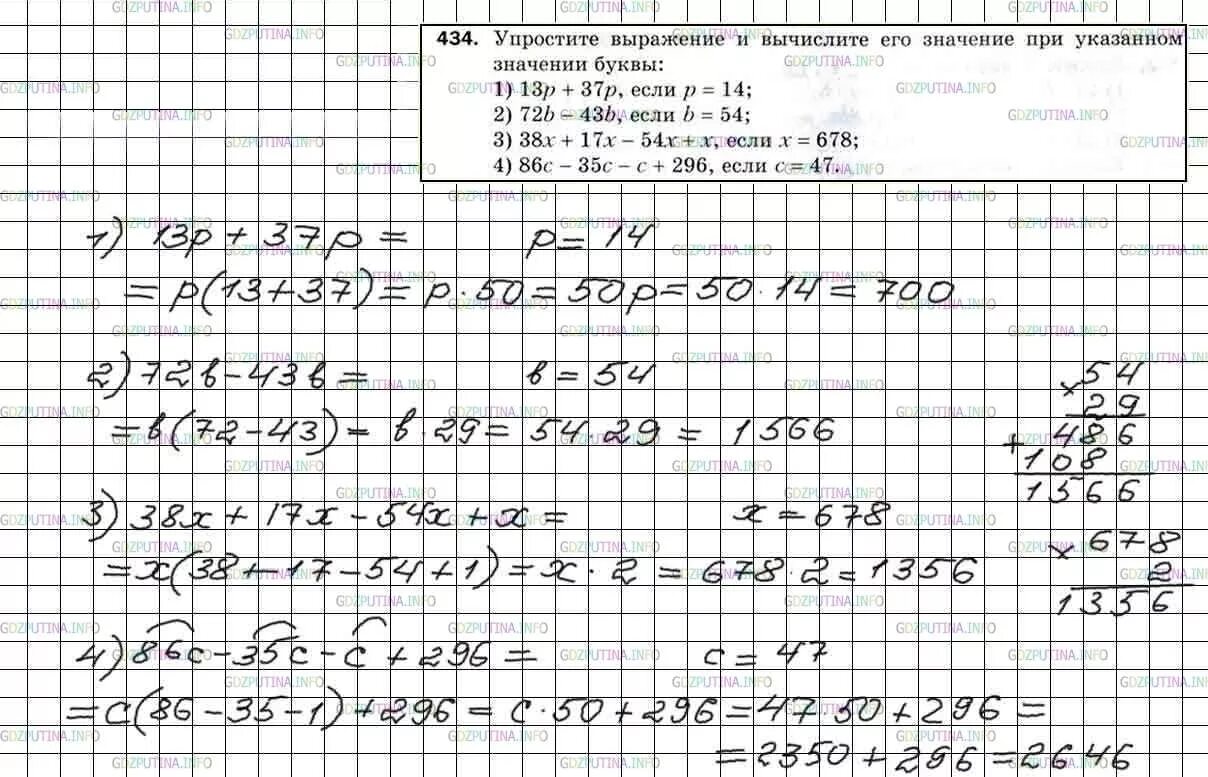 434. Упростите выражение и вычислите его значение при указанном
значении буквы:
1) 13p + 37p, если p = 14;
2) 72b – 43b, если b = 54;
3) 38x + 17x – 54x + x, если x = 678;
4) 86c – 35c – c + 296, если c = 47.
1) 13p + 37p = p = 14
= p(13+37) = p · 50 = 50p = 50 · 14 = 700
2) 72в – 43в = в = 54
= в(72 – 43) = в · 29 = 54 · 29 = 1566
× 54
29
+ 486
108
1566
3) 38x + 17x – 54x + x = x = 678
= x(38 + 17 – 54 + 1) = x · 2 = 678 · 2 = 1356
× 678
2
1356
4) 86c – 35c – c + 296 = c = 47
= c(86 – 35 – 1) + 296 = c · 50 + 296 = 47 · 50 + 296 =
= 2350 + 296 = 2646
GDZPUTINA.INFO